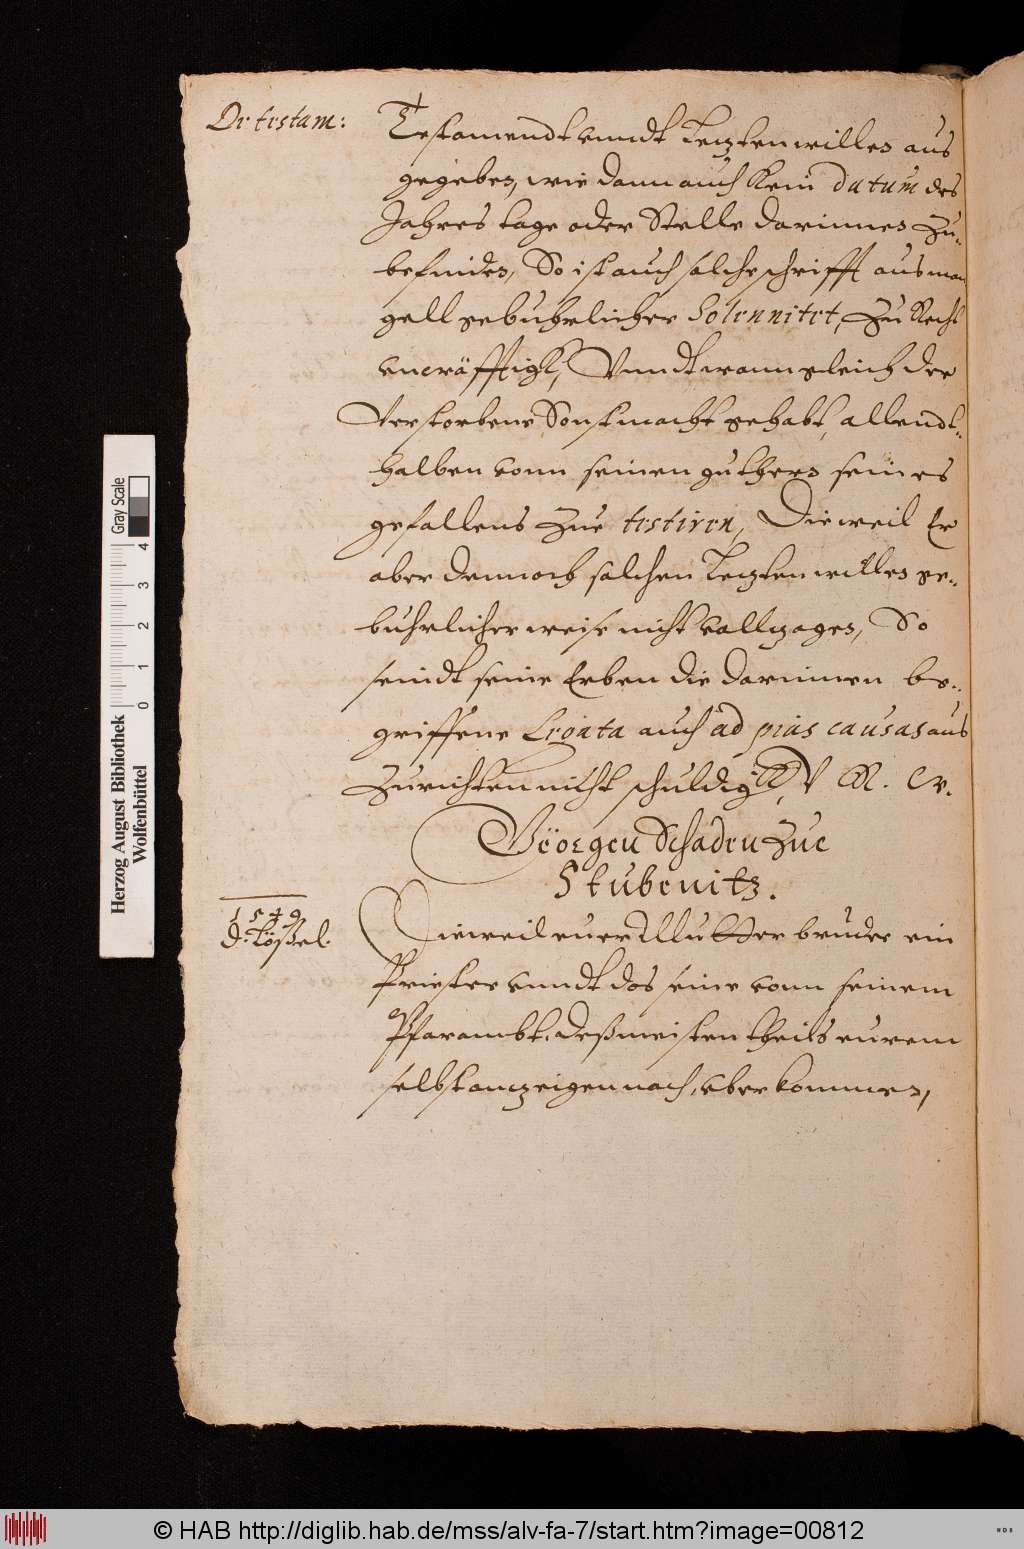 De testam:
Testamendt vnndt Letzten willen aus
gegeben, wie dann auch kein datum des
Jahres tage oder Stelle darinnen zu-
befinden, So ist auch solche schrifft aus man
gell gebuhrlicher Solennitet, zu Recht
vncräfftigk, Vnndt wann gleich der
Verstorbene Sonst macht gehabt, allendt-
halben vonn seinen guthern seines
gefallens zue testiren, Dieweil Er
aber dennoch solchen Letzten willen ge-
buhrlicher weise nicht vollzogen, So
seindt seine Erben die darinnen be-
griffene Legata auch ad pias causas aus
zurichten nicht schuldig V. R. W.
Georgen Schaden zue
Stubenitz.
1549
d. Lößel.
Dieweil euer Mutter bruder ein
Priester vnndt das seine vonn seinem
Pfarambt, deß meisten theils eurem
selbst anzeigen nach, vberkommen,
Herzog August Bibliothek
Wolfenbüttel
0 1 2 3 4
Gray Scale
© HAB http://diglib.hab.de/mss/alv-fa-7/start.htm?image=00812